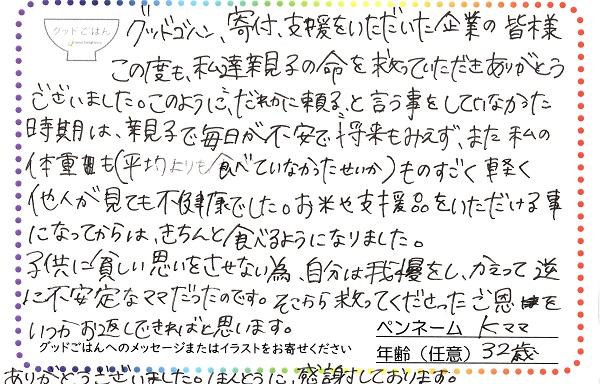 グッドごはん
グッドゴハン、寄付、支援をいただいた企業の皆様
この度も、私達親子の命を救っていただきありがとう
ございました。このように、だれかに頼る、と言う事をしていなかった
時期は、親子で毎日が不安で将来もみえず、また私の
体重も(平均よりも食べていなかったせいか)ものすごく軽く
他人が見ても不健康でした。お米や支援品をいただける事
になってからは、きちんと食べるようになりました。
子供に貧しい思いをさせない為、自分は我慢をし、かえって逆
に不安定なママだったのです。そこから救ってくださったご恩を
いつかお返しできればと思います。
ペンネーム Kママ
グッドごはんへのメッセージまたはイラストをお寄せください
年齢(任意) 32歳
ありがとうございました。ほんとうに、感謝しております。